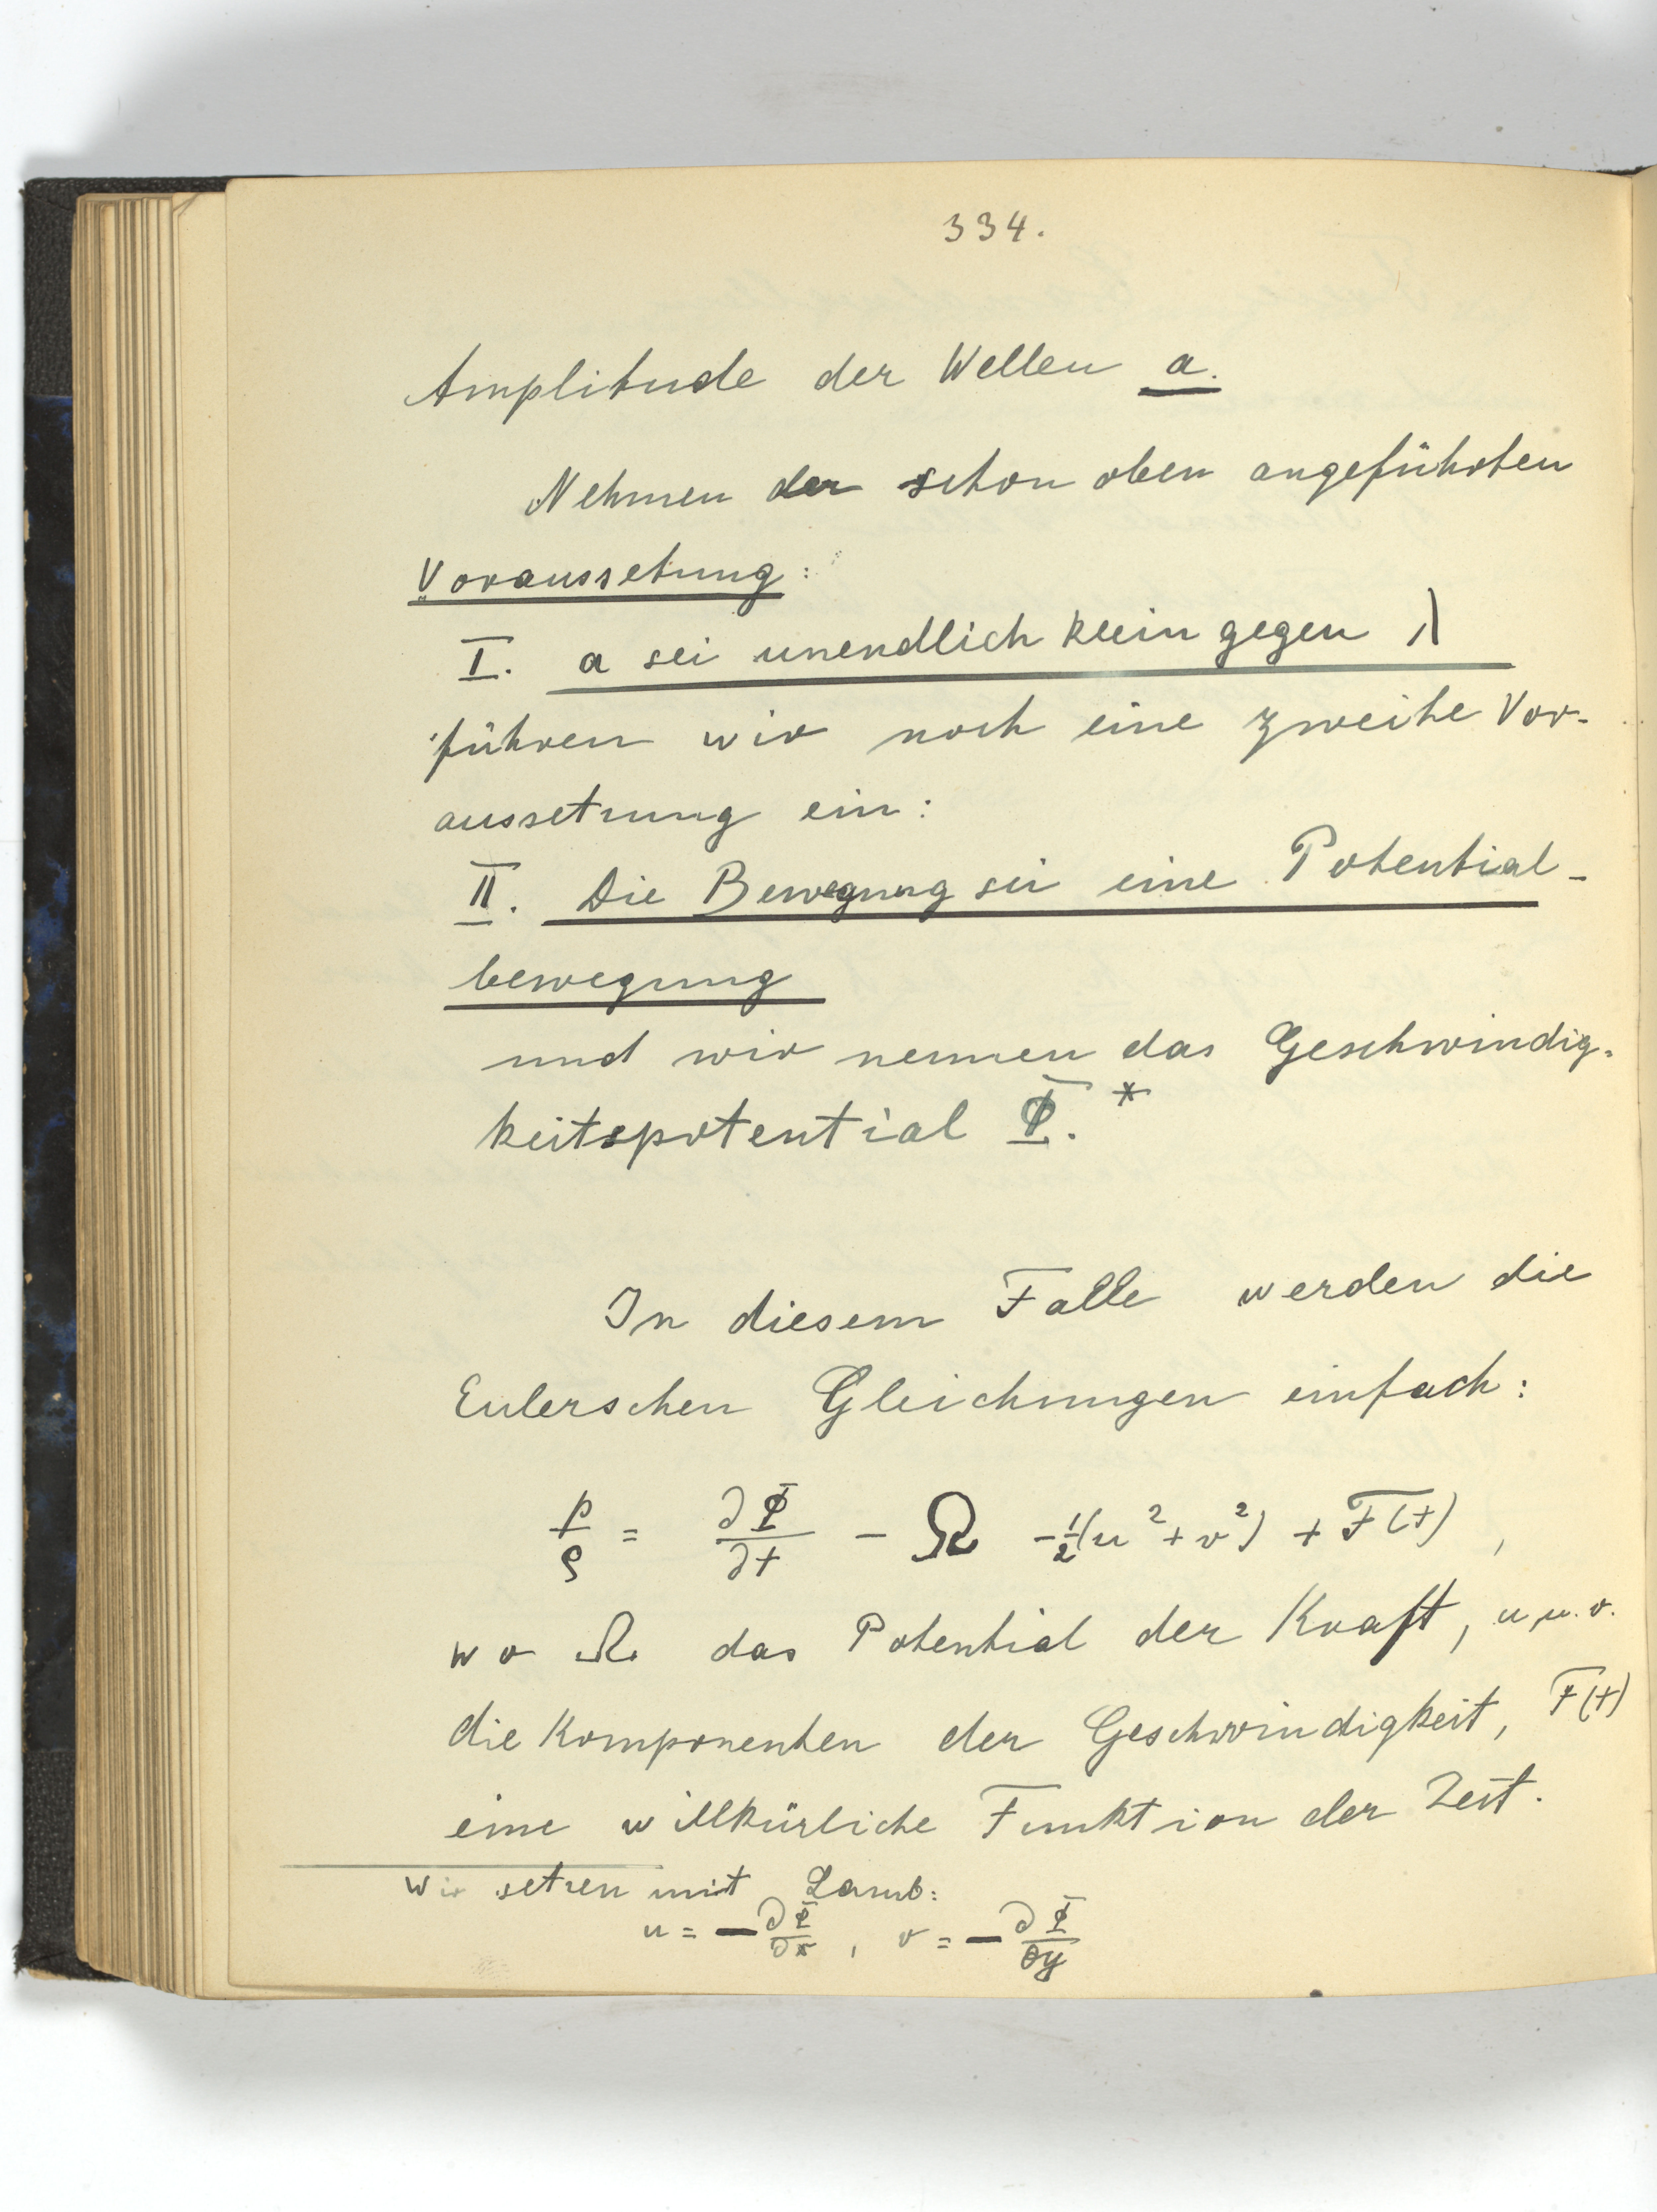 334.
Amplitude der Wellen a.
Nehmen der schon oben angeführten
Voraussetzung:
I. a sei unendlich klein gegen λ
führen wir noch eine zweite Vor-
aussetzung ein:
II. Die Bewegung sei eine Potential-
bewegung
und wir nennen das Geschwindig-
keitspotential Φ. *
In diesem Falle werden die
Eulerschen Gleichungen einfach:
p/ρ = ∂Φ/∂t - Ω - 1/2(u²+v²) + F(t) ,
wo Ω das Potential der Kraft, u u. v.
die Komponenten der Geschwindigkeit, F(t)
eine willkürliche Funktion der Zeit.
Wir setzen mit Lamb:
u = -∂Φ/∂x , v = -∂Φ/∂y